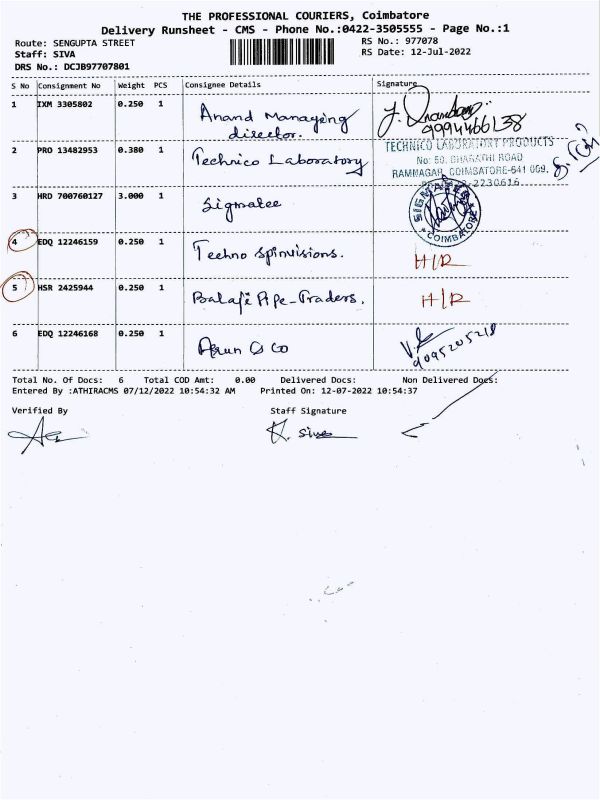 THE PROFESSIONAL COURIERS, Coimbatore
Delivery Runsheet - CMS - Phone No.:0422-3505555 - Page No.:1
Route: SENGUPTA STREET
Staff: SIVA
DRS No.: DCJB97707801
RS No.: 977078
RS Date: 12-Jul-2022
S No Consignment No Weight PCS Consignee Details Signature
1 IXM 3305802 0.250 1 Anand Managing director.
9994466138
2 PRO 13482953 0.380 1 Technico Laboratory
TECHNICO LABORATORY PRODUCTS
No: 50, BHARATHI ROAD
RAMNAGAR, COIMBATORE-641 009.
2230616
3 HRD 700760127 3.000 1 Sigmatee
SIGMATEE
COIMBATORE
4 EDQ 12246159 0.250 1 Techno Spinvisions. H/R
5 HSR 2425944 0.250 1 Balaji Pipe-Traders. H/R
6 EDQ 12246168 0.250 1 Arun & Co
9095205218
Total No. Of Docs: 6 Total COD Amt: 0.00 Delivered Docs: Non Delivered Docs:
Entered By :ATHIRACMS 07/12/2022 10:54:32 AM Printed On: 12-07-2022 10:54:37
Verified By Staff Signature
K. Siva